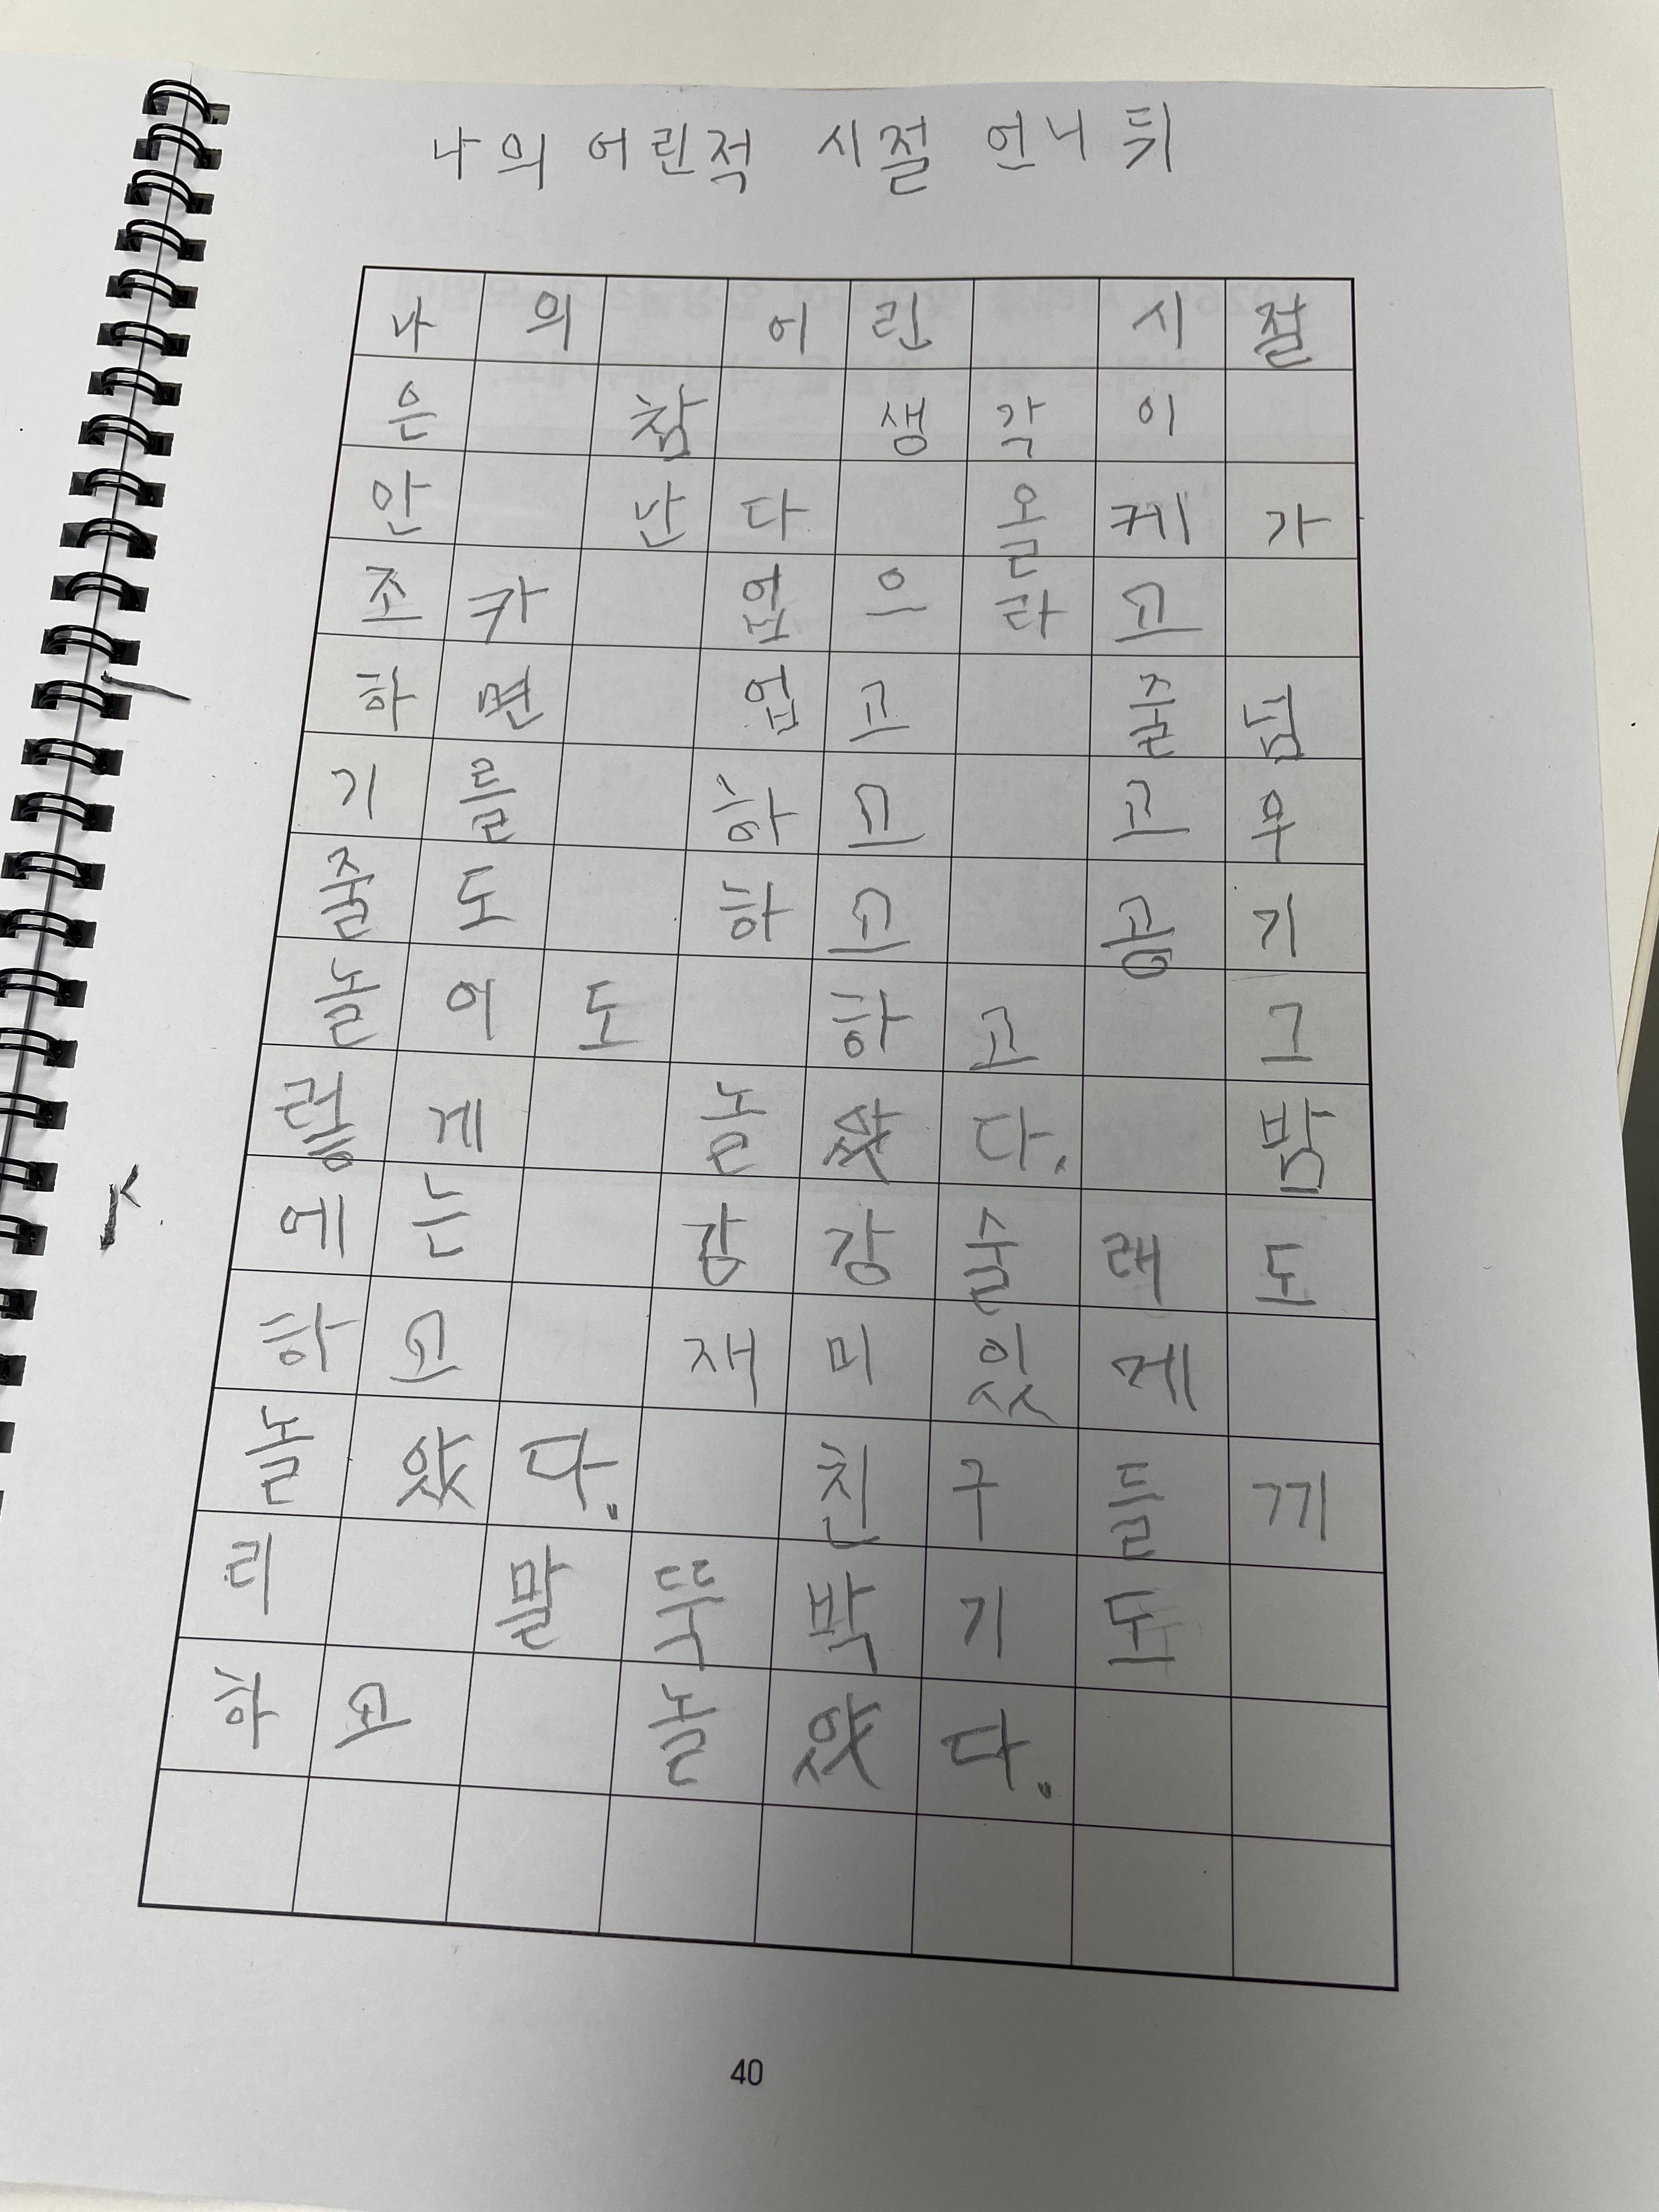 나의 어린적 시절 언니 뒤
나의 어린 시절
은 참 생각이
안 난다 올케가
조카 업으라고
하면 업고 줄넘
기를 하고 고무
줄도 하고 공기
놀이도 하고 그
렇게 놀았다. 밤
에는 강강술래도
하고 재미있게
놀았다. 친구들끼
리 말뚝박기도
하고 놀았다.
40